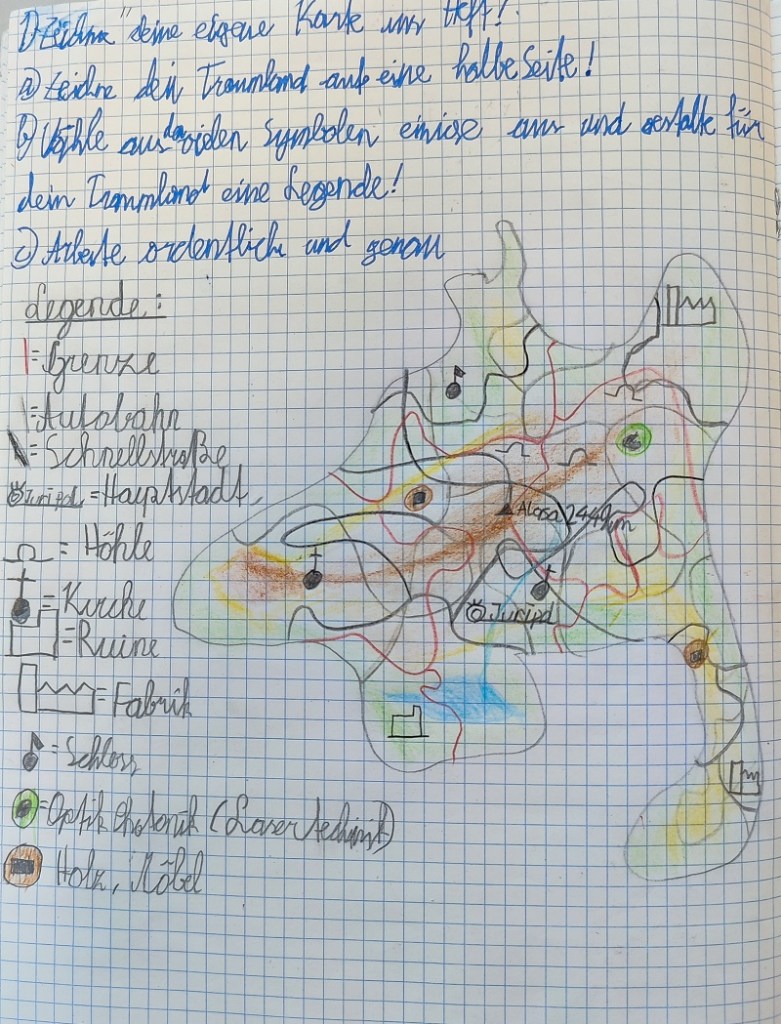 1) Zeichne deine eigene Karte ins Heft!
a) Zeichne dein Traumland auf eine halbe Seite!
b) Wähle aus den vielen Symbolen einige aus und gestalte für
dein Traumland eine Legende!
c) Arbeite ordentlich und genau
Legende:
= Grenze
= Autobahn
= Schnellstraße
Juripd = Hauptstadt
= Höhle
= Kirche
= Ruine
= Fabrik
= Schloss
= Optik Photonik (Lasertechnik)
Holz, Möbel
Alosa 2449m
Juripd